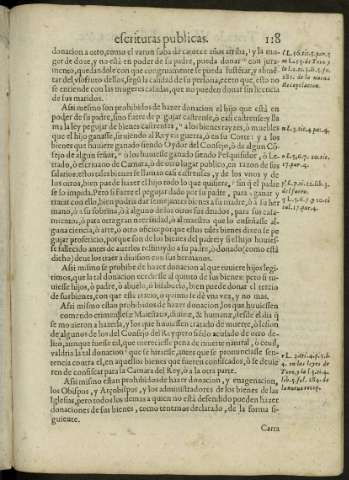 escrituras publicas. 118
donacion a otro, como el varon sea de catorce años arriba, y la mu
ger de doze, y no està en poder de su padre, pueda donar con jura
mento, quedandole con que congruamente se pueda sustētar, y alimē
tar del, vsofruto dellos, segū la calidad de la persona, ecepto que esto no
se entiende con las mugeres casadas, que no pueden donar sin licencia
de sus maridos.
Assi mesmo son prohibidos de hazer donacion el hijo que està en
poder de su padre, sino fuere de pegujar castrense, ò casi castrense y lla
ma la ley pegujar de bienes castrenses, a los bienes rayzes, ò muebles
que el hijo ganasse, siruiendo al Rey en la guerra, ò en su Corte y los
bienes que huuiere ganado siendo Oydor del Consejo, ò de algun Cō
sejo de algun señor, o los huuiesse ganado siendo Pesquisidor, ò Le
trado, ò escriuano de Camara, ò de otro lugar publico, en razon de sus
salarios: estos tales bienes se llaman casi castrenses, y de los vnos y de
los otros, bien puede hazer el hijo todo lo que quisiere, sin q̄ el padre
se lo impida. Pero si fuere el pegujar dado por su padre, para ganar y
tratar con ello, bien podria dar siendo bienes a su madre, ò a su her
mana, ò a su sobrina, ò a alguno de los otros sus deudos, para su casa
miento, ò para otra gran necessidad, ò al maestro que le enseñasse al-
guna ciencia, ò arte, ò otro oficio: porque estos tales bienes dizen se pe
gujar profeticio, porque son de los bienes del padre: y si el hijo houies
se fallecido antes de auerlos restituydo a su padre, ò donado (como està
dicho) deue los traer a diuision con sus hermanos.
Assi mismo se prohibe de hazer donacion al que tuuiere hijos legi-
timos, que la tal donacion eceda se al quinto de sus bienes: pero si tu-
uiesse hijos, ò padre, ò abuelo, ò bisabuelo, bien puede donar el tercio
de sus bienes, con que este tercio, o quinto se de vna vez, y no mas.
Assi mismo estan prohibidos de hazer donacion, los que huuiessen
cometido crimen lesæ Maiestatis, diuinæ, & humanæ, desde el dia q̄
se mouieron a hazerla, y los que huuiessen tratado de muerte, ò lesion
de algunos de los del Consejo del Rey: pero siēdo acusado de otro de-
lito, aunque fuesse tal, que mereciesse pena de muerte natural, ò ceuil,
valdria la tal donacion que se hiziesse, antes que se pronunciasse sen-
tencia contra el, en aquellos bienes que fuessen confiscados, ò se deuie
se confiscar para la Camara del Rey, ò a la otra parte.
Assi mismo estan prohibidos de hazer donacion, y enagenacion,
los Obispos, y Arçobispos, y los administradores de los bienes de las
Iglesias, pero todos los demas a quien no està defendido pueden hazer
donaciones de sus bienes, como tenemos declarado, de la forma si-
guiente.
Carta